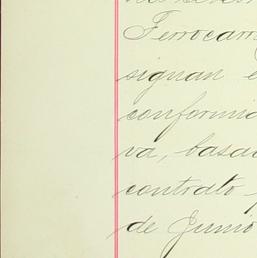 Ferrocarr
signan e
conformid
va, basad
contrato
de Junio